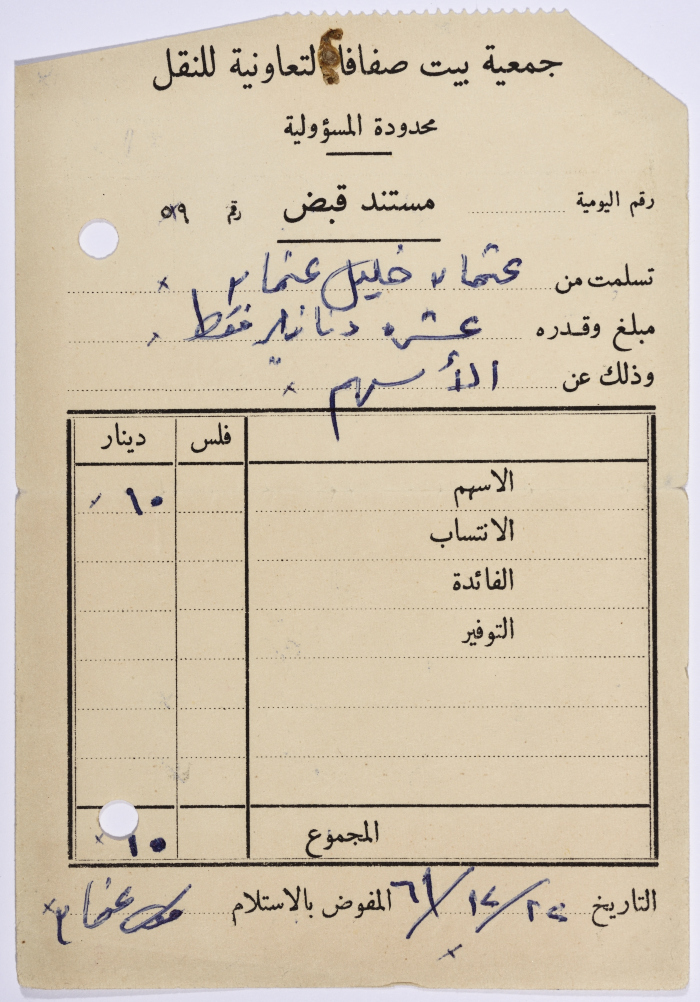 جمعية بيت صفافا التعاونية للنقل
محدودة المسؤولية
رقم اليومية
مستند قبض
رقم ٥١٩
تسلمت من عثمان خليل عثمان
مبلغ وقدره عشره دنانير فقط
وذلك عن الأسهم
فلس دينار
الاسهم ١٠
الانتساب
الفائدة
التوفير
المجموع ١٠
التاريخ ٦١/١٢/٢٤ المفوض بالاستلام عثمان